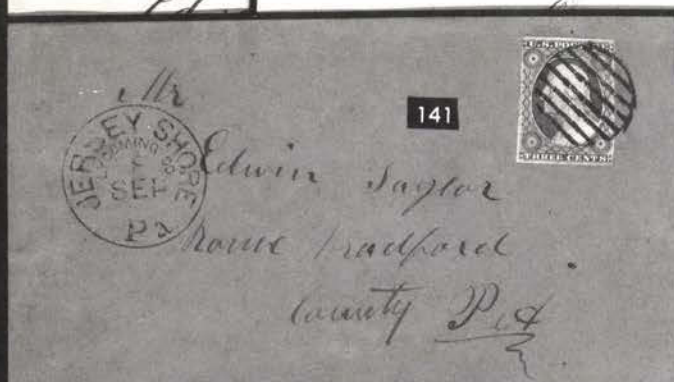 Mr
141
U.S. POSTAGE
THREE CENTS
JERSEY SHORE
LYCOMING CO
SEP
Pa
Edwin Taylor
Rome Bradford
County Pa